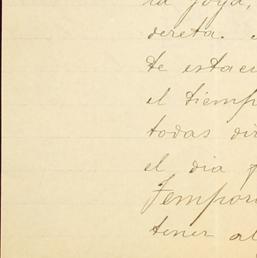 la joya,
dereta.
te estac
el tiemp
todas di
el dia
Tempor
tener al